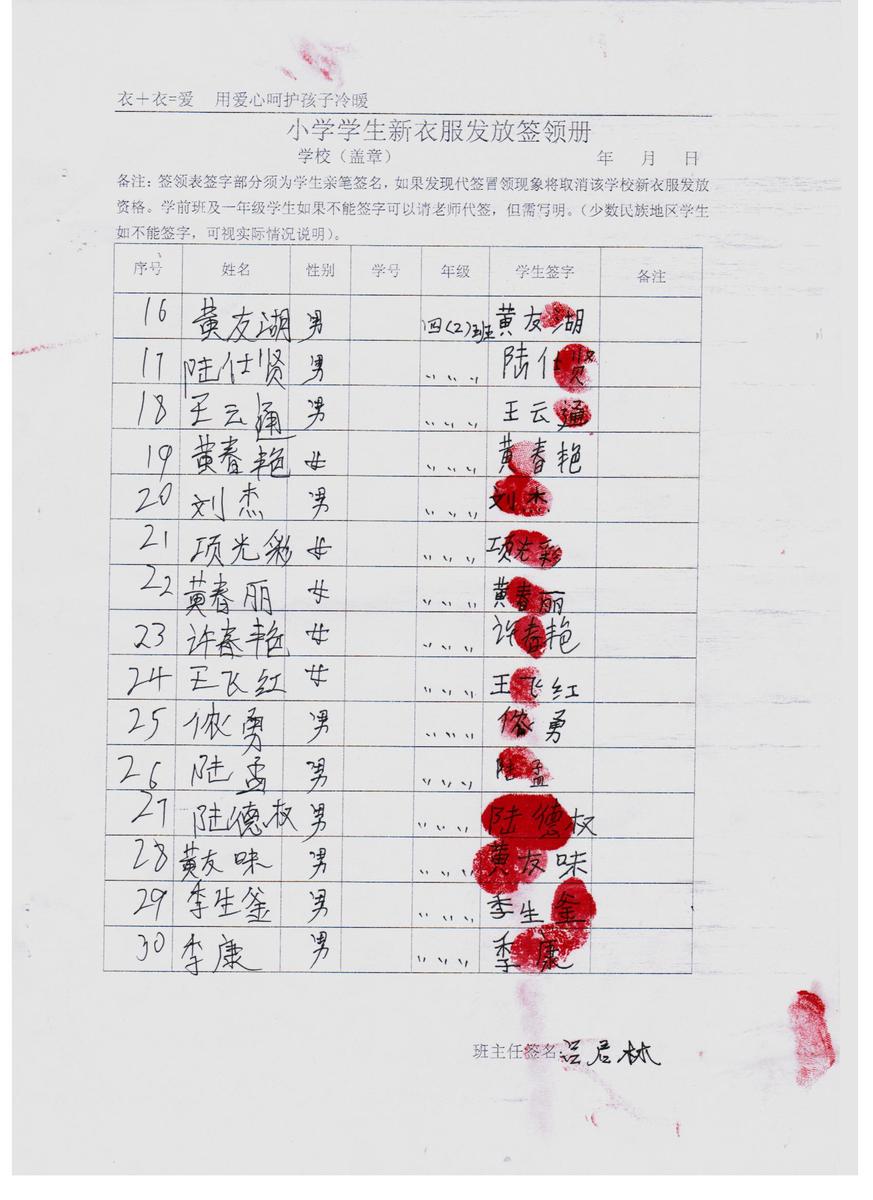 衣＋衣=爱 用爱心呵护孩子冷暖
小学学生新衣服发放签领册
学校（盖章） 年 月 日
备注：签领表签字部分须为学生亲笔签名，如果发现代签冒领现象将取消该学校新衣服发放
资格。学前班及一年级学生如果不能签字可以请老师代签，但需写明。（少数民族地区学生
如不能签字，可视实际情况说明）。
序号 姓名 性别 学号 年级 学生签字 备注
16 黄友湖 男 四(2)班 黄友湖
17 陆仕贤 男 〃 〃 〃 陆仕贤
18 王云通 男 〃 〃 〃 王云通
19 黄春艳 女 〃 〃 〃 黄春艳
20 刘杰 男 〃 〃 〃 刘杰
21 项光彩 女 〃 〃 〃 项光彩
22 黄春丽 女 〃 〃 〃 黄春丽
23 许春艳 女 〃 〃 〃 许春艳
24 王飞红 女 〃 〃 〃 王飞红
25 侬勇 男 〃 〃 〃 侬勇
26 陆孟 男 〃 〃 〃 陆孟
27 陆德权 男 〃 〃 〃 陆德权
28 黄友味 男 〃 〃 〃 黄友味
29 李生釜 男 〃 〃 〃 李生釜
30 李康 男 〃 〃 〃 李康
班主任签名 吕君林